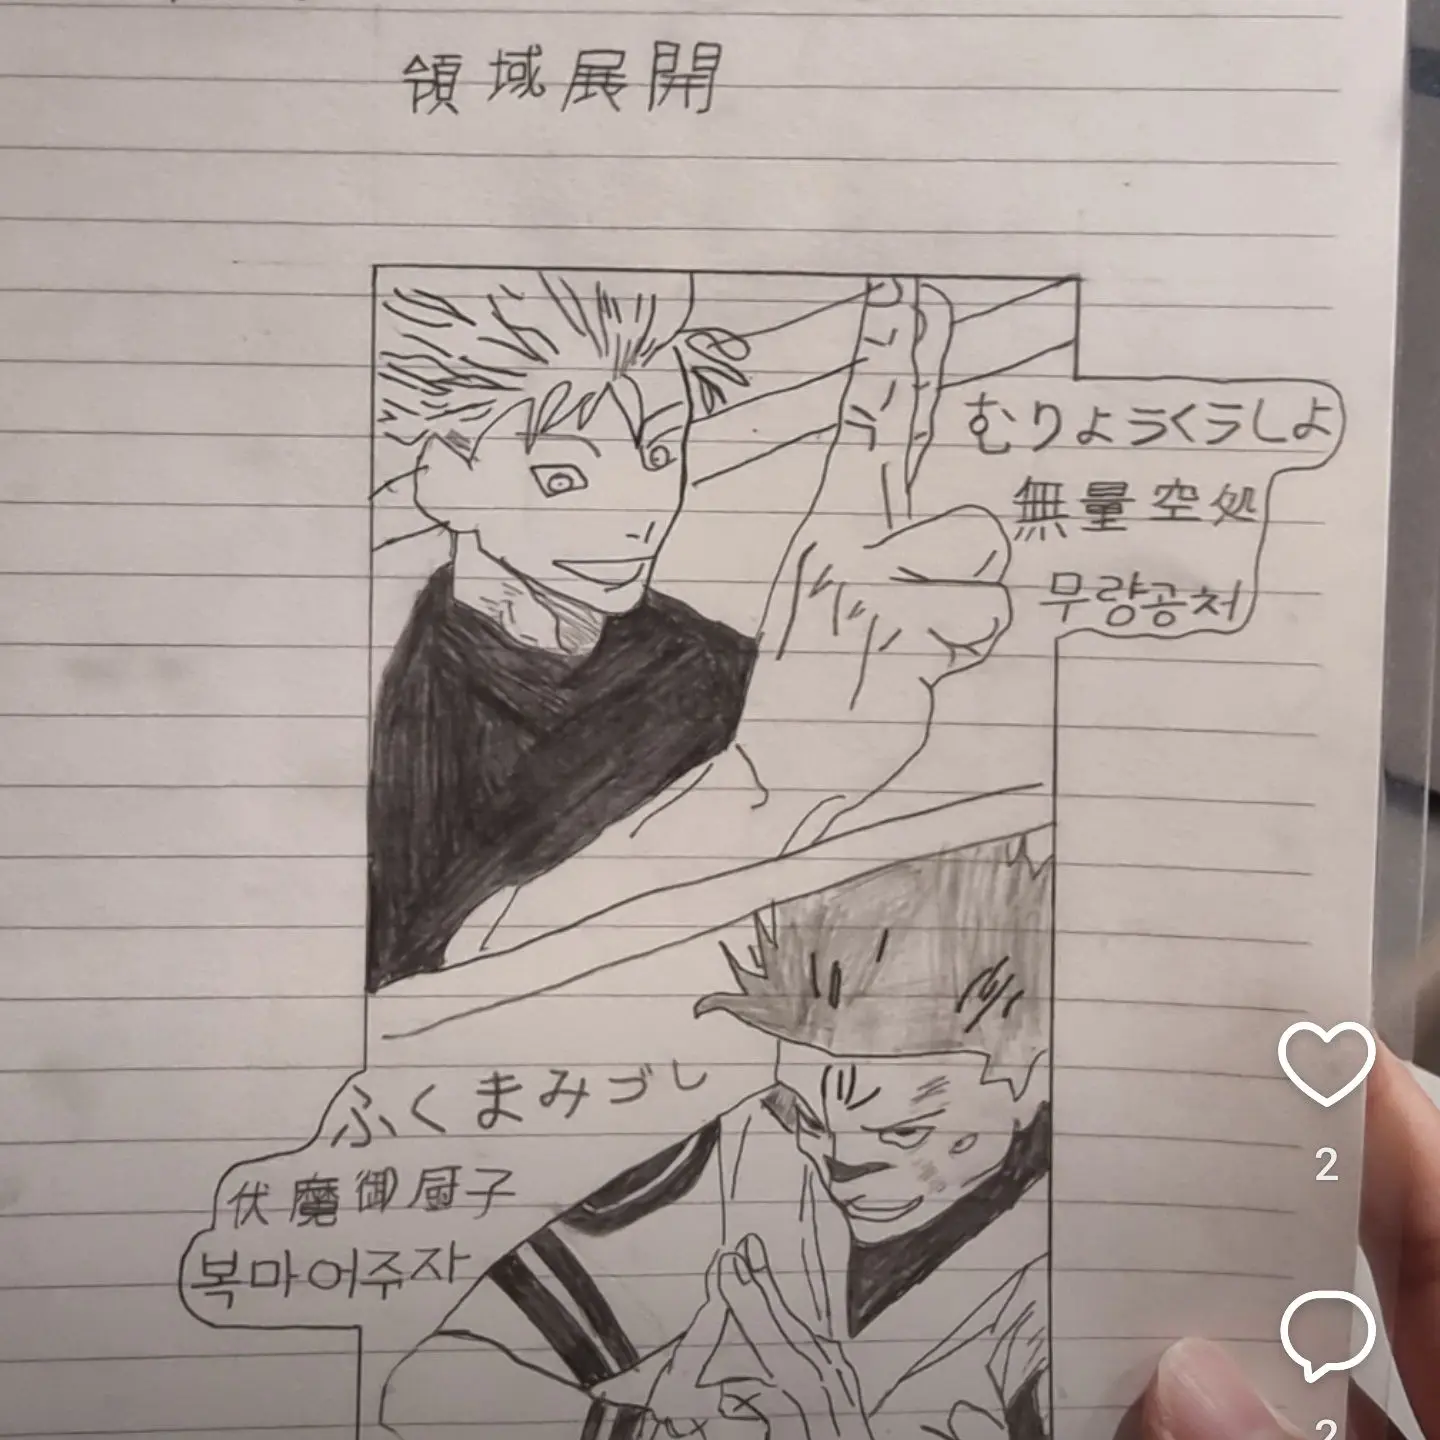 領域展開
むりょうくうしよ
無量空処
무량공처
ふくまみづし
伏魔御厨子
복마어주자
2
2